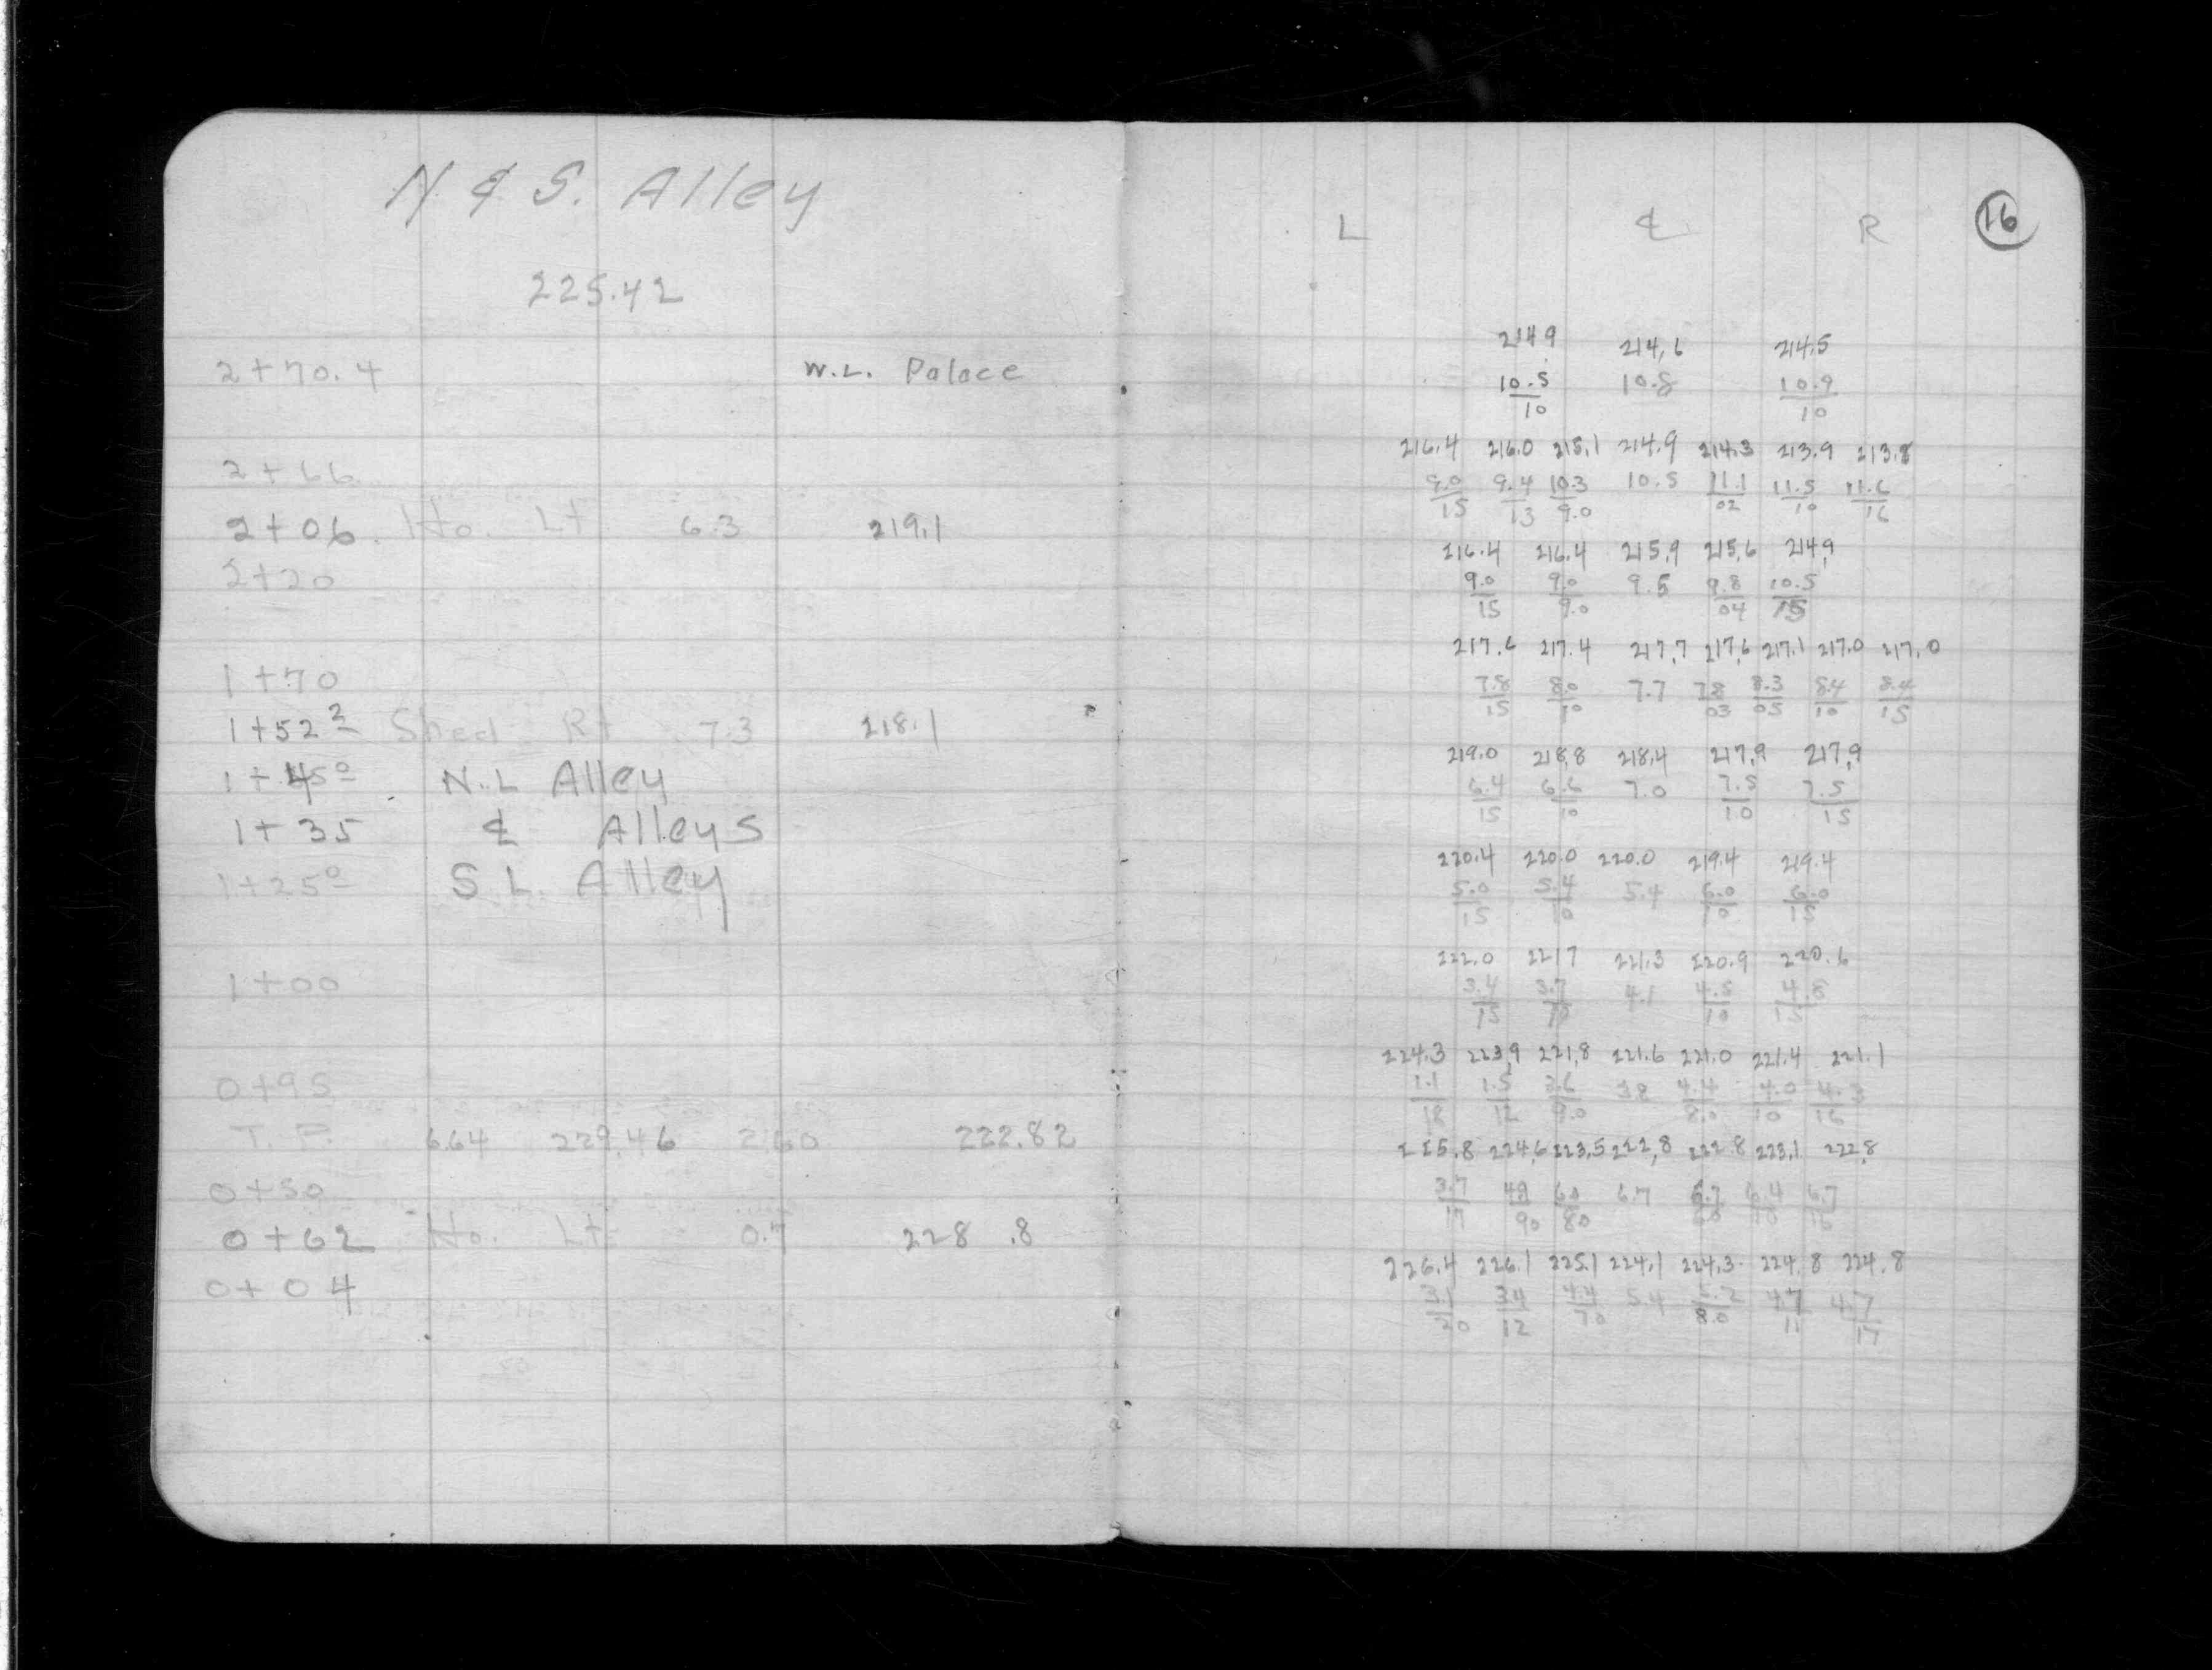 N. & S. Alley
225.42
2+70.4 W.L. Palace
2+66
2+06. Ho. Lt 6.3 219.1
2+20
1+70
1+52² Shed Rt 7.3 218.1
1+45⁰ N.L Alley
1+35 ℄ Alleys
1+25⁰ S L. Alley
1+00
0+95
T.P. 6.64 229.46 2.60 222.82
0+50
0+62 Ho. Lt 0.7 228.8
0+04
L ℄ R 16
214.9 214.6 214.5
10.5 10.8 10.9
10 10
216.4 216.0 215.1 214.9 214.3 213.9 213.8
9.0 9.4 10.3 10.5 11.1 11.5 11.6
15 13 9.0 02 10 16
216.4 216.4 215.9 215.6 214.9
9.0 9.0 9.5 9.8 10.5
15 9.0 04 15
217.6 217.4 217.7 217.6 217.1 217.0 217.0
7.8 8.0 7.7 7.8 8.3 8.4 8.4
15 10 03 05 10 15
219.0 218.8 218.4 217.9 217.9
6.4 6.6 7.0 7.5 7.5
15 10 10 15
220.4 220.0 220.0 219.4 219.4
5.0 5.4 5.4 6.0 6.0
15 10 10 15
222.0 221.7 221.3 220.9 220.6
3.4 3.7 4.1 4.5 4.8
15 10 10 15
224.3 223.9 221.8 221.6 221.0 221.4 221.1
1.1 1.5 3.6 3.8 4.4 4.0 4.3
18 12 9.0 8.0 10 16
225.8 224.6 223.5 222.8 222.8 223.1 222.8
3.7 4.9 6.0 6.7 6.7 6.4 6.7
17 90 80 10 16
226.4 226.1 225.1 224.1 224.3 224.8 224.8
3.1 3.4 4.4 5.4 5.2 4.7 4.7
20 12 70 8.0 11 17